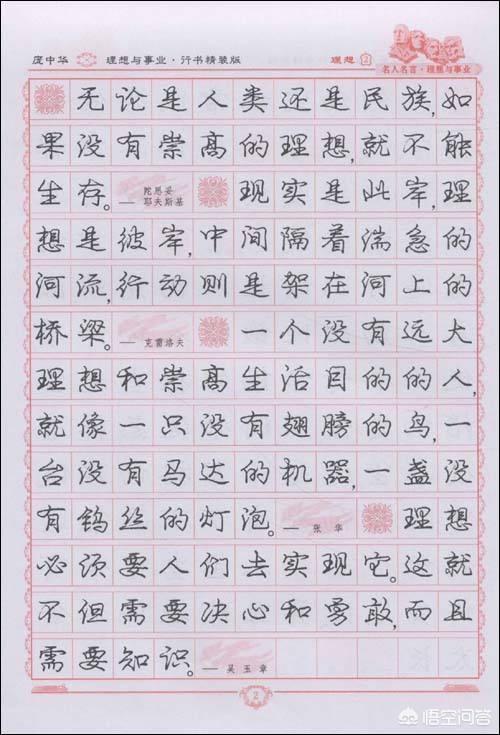 庞中华 理想与事业·行书精装版 理想 2
名人名言·理想与事业
无论是人类还是民族,如
果没有崇高的理想,就不能
生存。——陀思妥耶夫斯基 现实是此岸,理
想是彼岸,中间隔着湍急的
河流,行动则是架在河上的
桥梁。——克雷洛夫 一个没有远大
理想和崇高生活目的的人,
就像一只没有翅膀的鸟,一
台没有马达的机器,一盏没
有钨丝的灯泡。——张华 理想
必须要人们去实现它。这就
不但需要决心和勇敢,而且
需要知识。——吴玉章
2
悟空问答